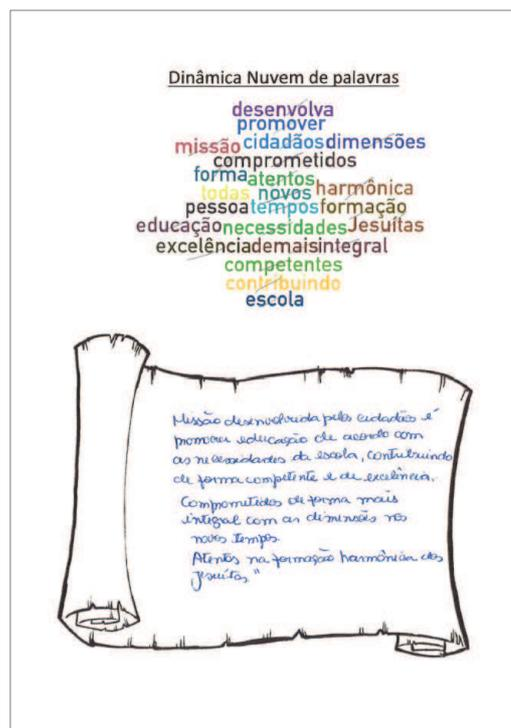 Dinâmica Nuvem de palavras
desenvolva
promover
missão cidadãos dimensões
comprometidos
forma atentos
todas novos harmônica
pessoa tempos formação
educação necessidades Jesuítas
excelência demais integral
competentes
contribuindo
escola
Missão desenvolvida pelos cidadãos é
promover educação de acordo com
as necessidades da escola, contribuindo
de forma competente e de excelência.
Comprometidos de forma mais
integral com as dimensões nos
novos tempos.
Atentos na formação harmônica dos
Jesuítas"